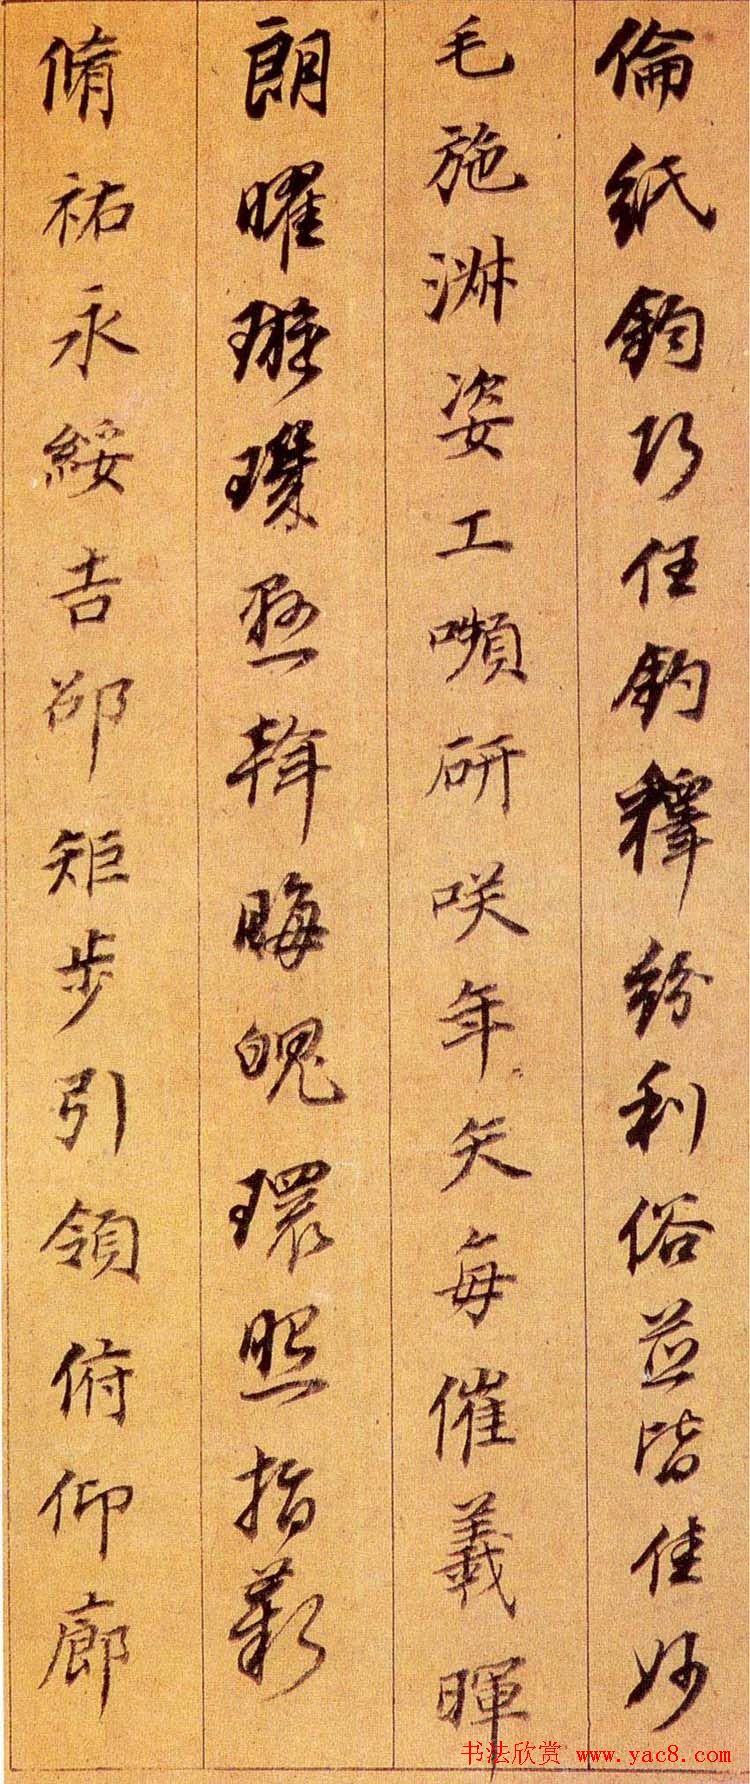 倫紙鈞巧任釣釋紛利俗並皆佳妙
毛施淑姿工嚬研咲年矢每催羲暉
朗曜璇璣懸斡晦魄環照指薪
脩祐永綏吉邵矩步引領俯仰廊
书法欣赏 www.yac8.com